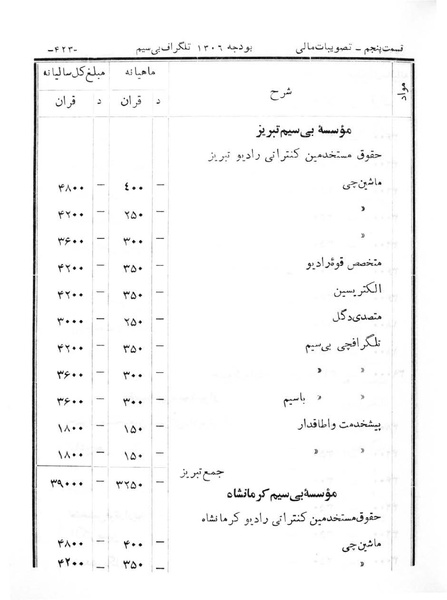 قسمت پنجم – تصویبات مالی بودجه ۱۳۰۶ تلگراف بی‌سیم -۴۲۳-
مواد شرح ماهیانه مبلغ کل سالیانه
قران د قران د
مؤسسهٔ بی‌سیم تبریز
حقوق مستخدمین کنتراتی رادیو تبریز
ماشین‌چی ۴۰۰ – ۴۸۰۰ –
» ۲۵۰ – ۴۲۰۰ –
» ۳۰۰ – ۳۶۰۰ –
متخصص قوهٔ رادیو ۳۵۰ – ۴۲۰۰ –
الکتریسین ۳۵۰ – ۴۲۰۰ –
متصدی دگل ۲۵۰ – ۳۰۰۰ –
تلگرافچی بی‌سیم ۳۵۰ – ۴۲۰۰ –
» » ۳۰۰ – ۳۶۰۰ –
» باسیم ۳۰۰ – ۳۶۰۰ –
پیشخدمت و اطاقدار ۱۵۰ – ۱۸۰۰ –
» » ۱۵۰ – ۱۸۰۰ –
جمع تبریز ۳۲۵۰ – ۳۹۰۰۰ –
مؤسسهٔ بی‌سیم کرمانشاه
حقوق مستخدمین کنتراتی رادیو کرمانشاه
ماشین‌چی ۴۰۰ – ۴۸۰۰ –
» ۳۵۰ – ۴۲۰۰ –